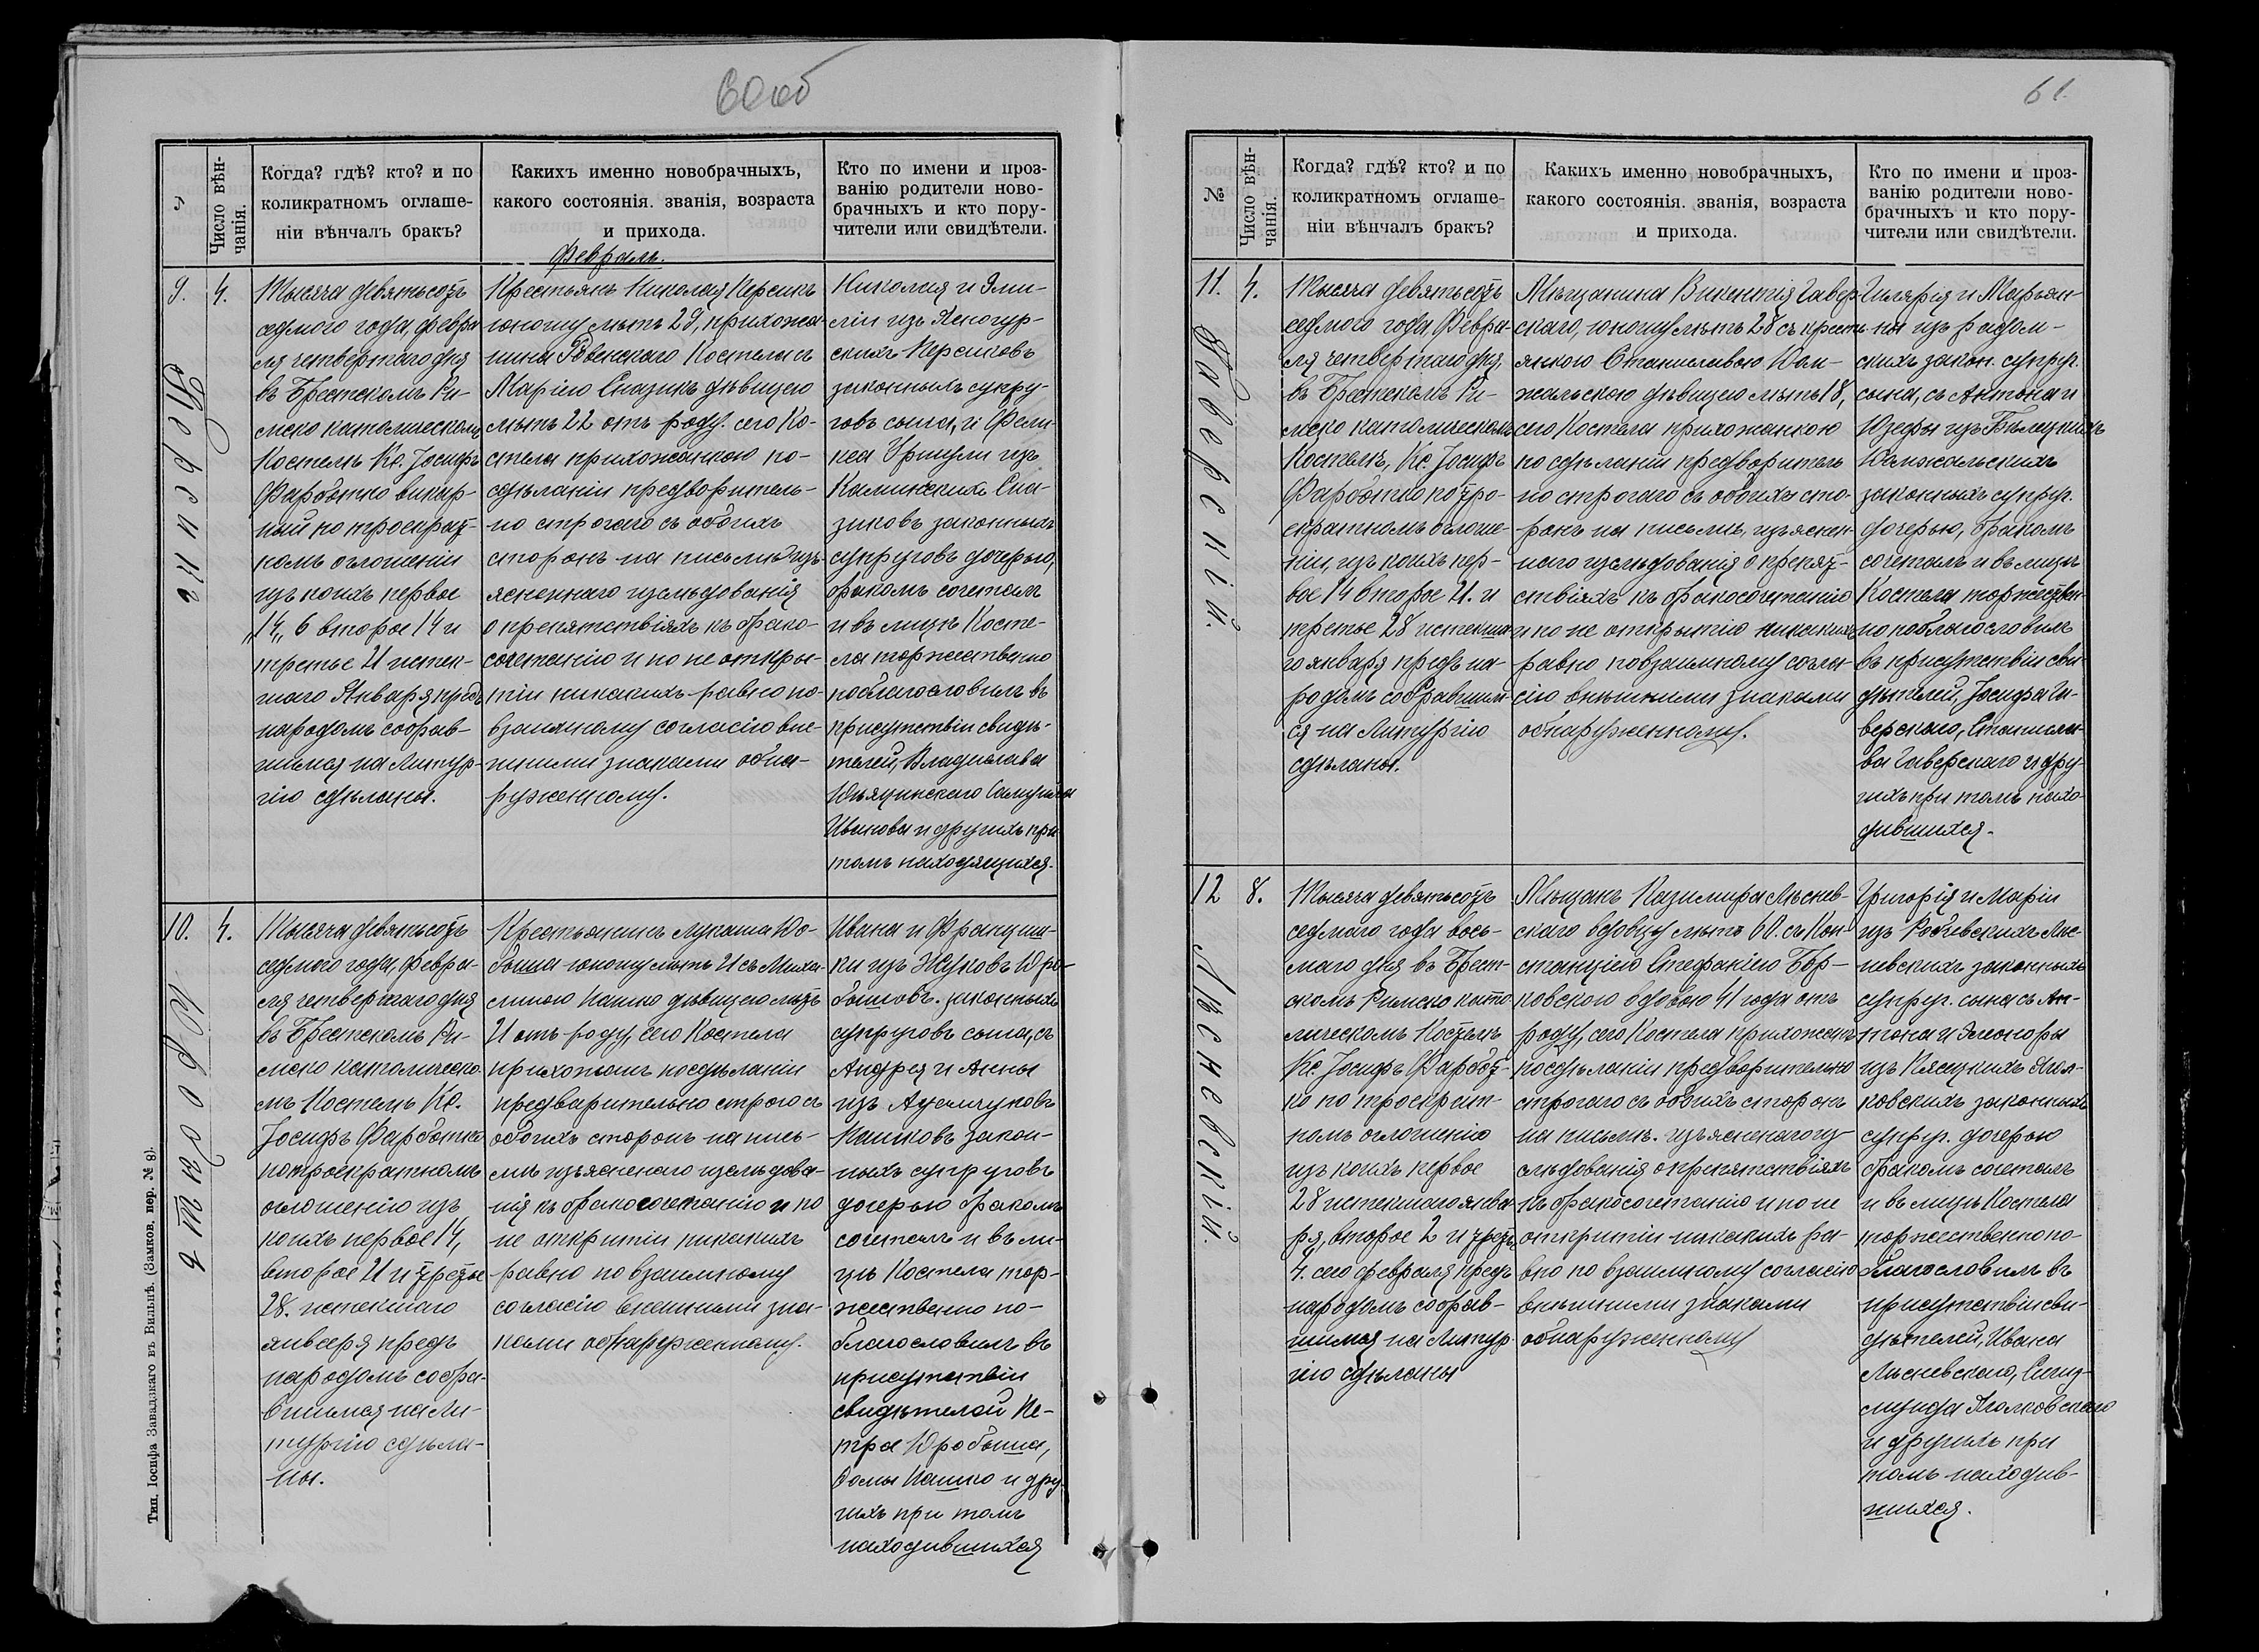 60об
№
Число вѣн-
чанія.
Когда? гдѣ? кто? и по
коликратномъ оглаше-
ніи вѣнчалъ бракъ?
Какихъ именно новобрачныхъ,
какого состоянія. званія, возраста
и прихода.
Кто по имени и проз-
ванію родители ново-
брачныхъ и кто пору-
чители или свидѣтели.
Февраль.
9.
4.
Персикъ
Тысяча девятьсотъ
седмого года, февра
ля четвертаго дня
въ Брестскомъ Ри-
мско католическомъ
Костелѣ Кс. Іосифъ
Фарботко викар-
ный по троекрат-
номъ оглашеніи
изъ коихъ первое
6 второе 14 и
третье 21 истек-
шаго Января предъ
народомъ собрав-
шимся на Литур-
гію сдѣланы.
Крестьянъ Николая Персикъ
юношу лѣтъ 29, прихожа-
нина Костела съ
Маріею Сназикъ дѣвицею
лѣтъ 22 отъ роду. сего Ко-
стела прихожанкою по-
сдѣланіи предваритель-
но строгаго съ обоихъ
сторонъ на письмѣ изъ-
ясненнаго изслѣдованія
о препятствіяхъ къ брако-
сочетанію и по не откры-
тіи никакихъ равно по-
взаимному согласію внѣ-
шними знаками обна-
руженному.
Николая и Эми-
ліи изъ Ясногур-
скихъ Персиковъ
законныхъ супру-
говъ сына, и Фели-
кса Уршули изъ
Каминскихъ Сна-
зиковъ законныхъ
супруговъ дочерью,
бракомъ сочеталъ
и въ лицѣ Косте-
ла торжественно
поблагословилъ въ
присутствіи свидѣ-
телей, Владислава
Самуила
Иванова и другихъ при
томъ находящихся.
10.
4.
Юробышъ
Тысяча девятьсотъ
седмого года, февра-
ля четвертаго дня
въ Брестскомъ Ри-
мско католическо-
мъ Костелѣ Кс.
Іосифъ Фарботко
по троекратномъ
оглашенію изъ
коихъ первое 14,
второе 21 и третье
28. истекшаго
января предъ
народомъ собра-
вшимся на Ли-
тургію сдѣла-
ны.
Крестьянинъ Лукаша Юро-
быша юношу лѣтъ 21 съ Миха-
линою Кашко дѣвицею лѣтъ
21 отъ роду, сего Костела
прихожанъ по сдѣланіи
предварительно строго съ
обоихъ сторонъ на пись-
мѣ изъясненаго изслѣдова-
нія къ бракосочетанію и по
не открытіи никакихъ
равно по взаимному
согласію внешними зна-
ками обнаруженному.
Ивана и Франциш-
ки изъ Жуковъ Юро-
бышовъ. законныхъ
супруговъ сына, съ
Андрея и Анны
изъ Адамчуковъ
Кашковъ закон-
ныхъ супруговъ
дочерью бракомъ
сочеталъ и въ ли-
цѣ Костела тор-
жественно по-
благословилъ въ
присутствіи
свидѣтелей Пе-
тра Юробыша,
Фомы Кашко и дру
гихъ при томъ
находившихся
Тип. Іосифа Завадзкаго въ Вильнѣ. (Замков. пер. № 8).
61.
№
Число вѣн-
чанія.
Когда? гдѣ? кто? и по
коликратномъ оглаше-
ніи вѣнчалъ бракъ?
Какихъ именно новобрачныхъ,
какого состоянія. званія, возраста
и прихода.
Кто по имени и проз-
ванію родители ново-
брачныхъ и кто пору-
чители или свидѣтели.
11.
4.
Гаверскій.
Тысяча девятьсотъ
седмого года, Февра-
ля четвертаго дня,
въ Брестскомъ Ри-
мско католическомъ
Костелѣ, Кс. Іосифъ
Фарботко по тро-
екратномъ оглаше-
ніи, изъ коихъ пер-
вое 14 второе 21. и
третье 28 истекша-
го января предъ на-
родомъ собравшим-
ся на Литургію
сдѣланы.
Мѣщанина Викентія Гавер-
скаго, юношу лѣтъ 28 съ кресть-
янкою Станиславою Дом-
жальскою дѣвицею лѣтъ 18,
сего Костела прихожанкою
по сдѣланіи предваритель
но строгаго съ обоихъ сто-
ронъ на письмѣ, изъяснен-
наго изслѣдованія о препят-
ствіяхъ къ бракосочетанію
и по не открытію никакихъ
равно по взаимному согла-
сію внѣшними знаками
обнаруженному.
Гилярія и Марьян-
ны изъ Радом-
скихъ закон. супруг.
сына, съ Антона и
Юзефы изъ Билецкихъ
Домжальскихъ
законныхъ супруг.
дочерью, бракомъ
сочеталъ и въ лицѣ
Костела торжествен
но поблагословилъ
въ присутствіи сви-
дѣтелей, Іосифа Га-
верскаго, Станисла-
ва Гаверскаго и дру-
гихъ при томъ нахо-
дившихся.
12
8.
Лѣсневскій.
Тысяча девятьсотъ
седмаго года вось-
маго дня въ Брест-
скомъ Римско като
лическомъ Костелѣ
Кс. Іосифъ Фарбот-
ко по троекрат-
номъ оглашенію
изъ коихъ первое
28 истекшаго янва
ря, второе 2 и треть.
4. сего февраля предъ
народомъ собрав-
шимся на Литур
гію сдѣланы
Мѣщанъ Казимира Лѣснев-
скаго вдовцу лѣтъ 60. съ Кон-
станціею Стефаніею
вдовою 41 года отъ
роду, сего Костела прихожанъ
по сдѣланіи предварительно
строгаго съ обоихъ сторонъ
на письмѣ. изъясненаго из-
слѣдованія о препятствіяхъ
къ бракосочетанію и по не
открытіи никакихъ ра-
вно по взаимному согласію
внѣшними знаками
обнаруженному
Григорія и Маріи
изъ Лѣс-
невскихъ законныхъ
супруг. сына съ Ан-
тона и Элеоноры
изъ
законныхъ
супруг. дочерью
бракомъ сочеталъ
и въ лицѣ Костела
торжественно по-
благословилъ въ
присутствіи сви-
дѣтелей, Ивана
Лѣсневскаго, Сигиз-
мунда
и другихъ при
томъ находив-
шихся.